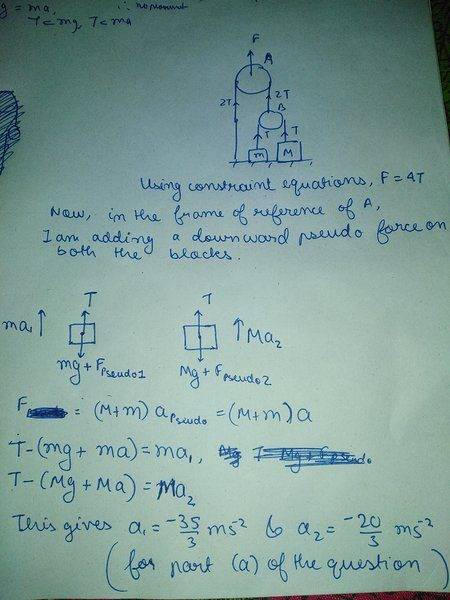 g = ma, ∴ no movement
T < mg, T < Ma
F
A
2T
2T
B
T T
m M
Using constraint equations, F = 4T
Now, in the frame of reference of A,
I am adding a downward pseudo force on
both the blocks.
T T
ma₁ ↑ ↑ Ma₂
mg + Fpseudo1 Mg + Fpseudo2
F = (M+m) apseudo = (M+m) a
T - (mg + ma) = ma₁,
T - (Mg + Ma) = Ma₂
This gives a₁ = -35/3 ms⁻² & a₂ = -20/3 ms⁻²
(for part (a) of the question)